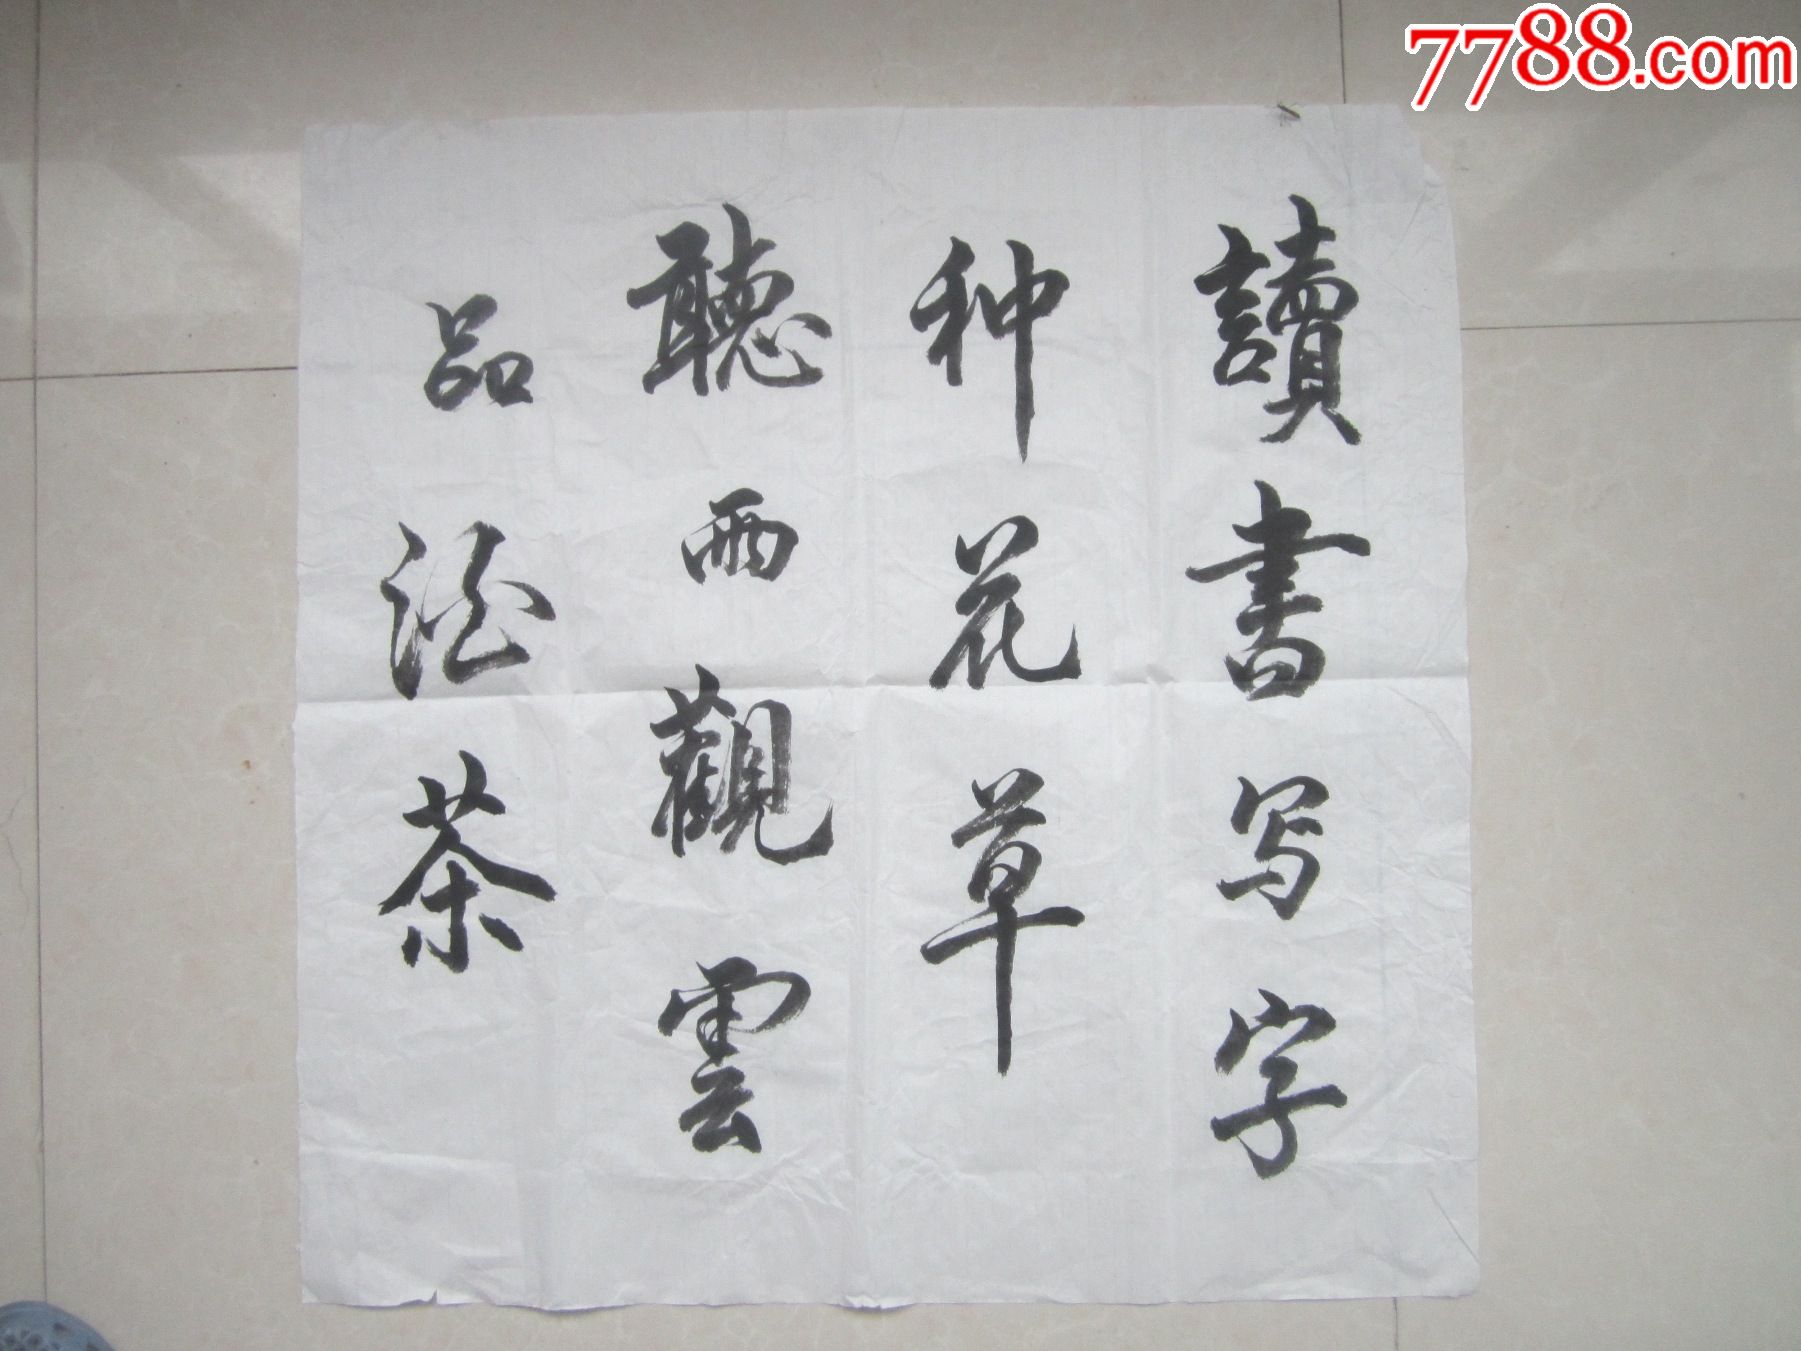 讀書写字
种花草
聽雨觀雲
品酒茶
7788.com